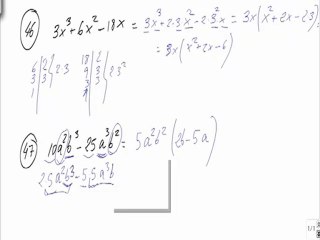 46) 3x³+6x²-18x = 3x³+2·3x²-2·3²x = 3x(x²+2x-2·3)
= 3x(x²+2x-6)
6 2
3 3
1
2·3
18 2
9 3
3 3
2·3²
47) 10a²b³-25a³b² = 5a²b²(2b-5a)
2·5a²b³-5·5a³b
1/1